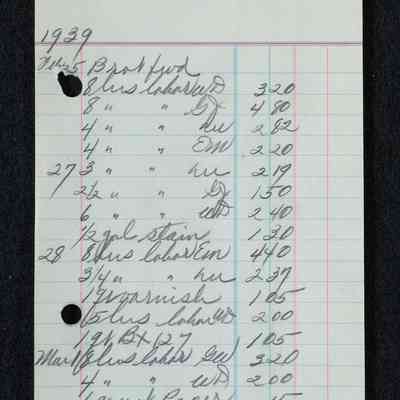 1939
Feb 25 Brot fwd
8 hrs labor WD 320
8 " " GJ 480
4 " " hw 282
4 " " EM 220
27 3 " " hw 219
2 1/2 " " GJ 150
6 " " WD 240
1/2 gal stain 130
28 8 hrs labor Em 440
3 1/4 " " hw 237
1 qt varnish 105
5 hrs labor WD 200
196 BX 127 105
Mar 1 8 hrs labor GW 320
4 " " WD 200
1 15